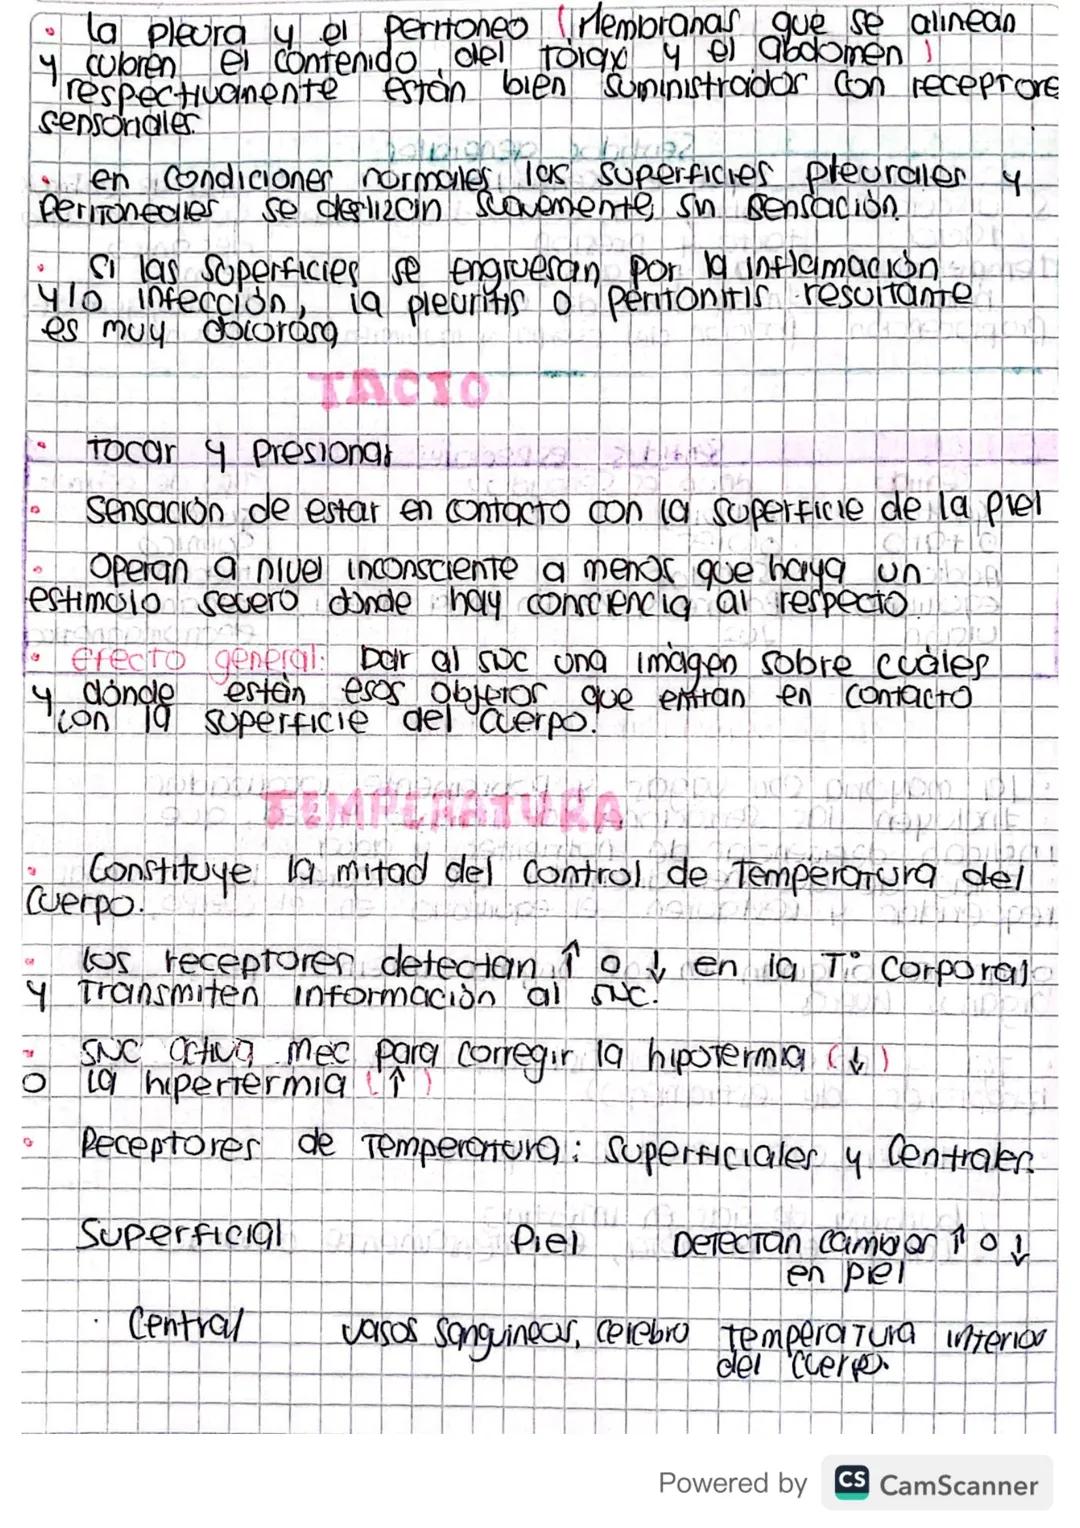 • La pleura y el peritoneo (Membranas que se alinean
y cubren el contenido del tórax y el abdomen)
respectivamente están bien suministrados con receptore
sensoriales.
• en condiciones normales las superficies pleurales y
peritoneales se deslizan suavemente, sin sensación.
• Si las superficies se engruesan por la inflamación
y/o infección, la pleuritis o peritonitis resultante
es muy dolorosa
TACTO
• Tocar y Presionar
• Sensación de estar en contacto con la superficie de la piel
• Operan a nivel inconsciente a menos que haya un
estímulo severo donde hay consciencia al respecto
• Efecto general: Dar al SNC una imágen sobre cuáles
y dónde están esos objetos que entran en contacto
con la superficie del cuerpo.
TEMPERATURA
• Constituye la mitad del control de Temperatura del
cuerpo.
• Los receptores detectan ↑ o ↓ en la T° corporal
y Transmiten información al SNC.
• SNC activa mec para corregir la hipotermia (↓)
o la hipertermia (↑)
• Receptores de Temperatura: Superficiales y Centrales.
Superficial Piel Detectan cambios ↑ o ↓
en piel
· Central vasos sanguíneos, cerebro temperatura interior
del cuerpo.
Powered by CS CamScanner